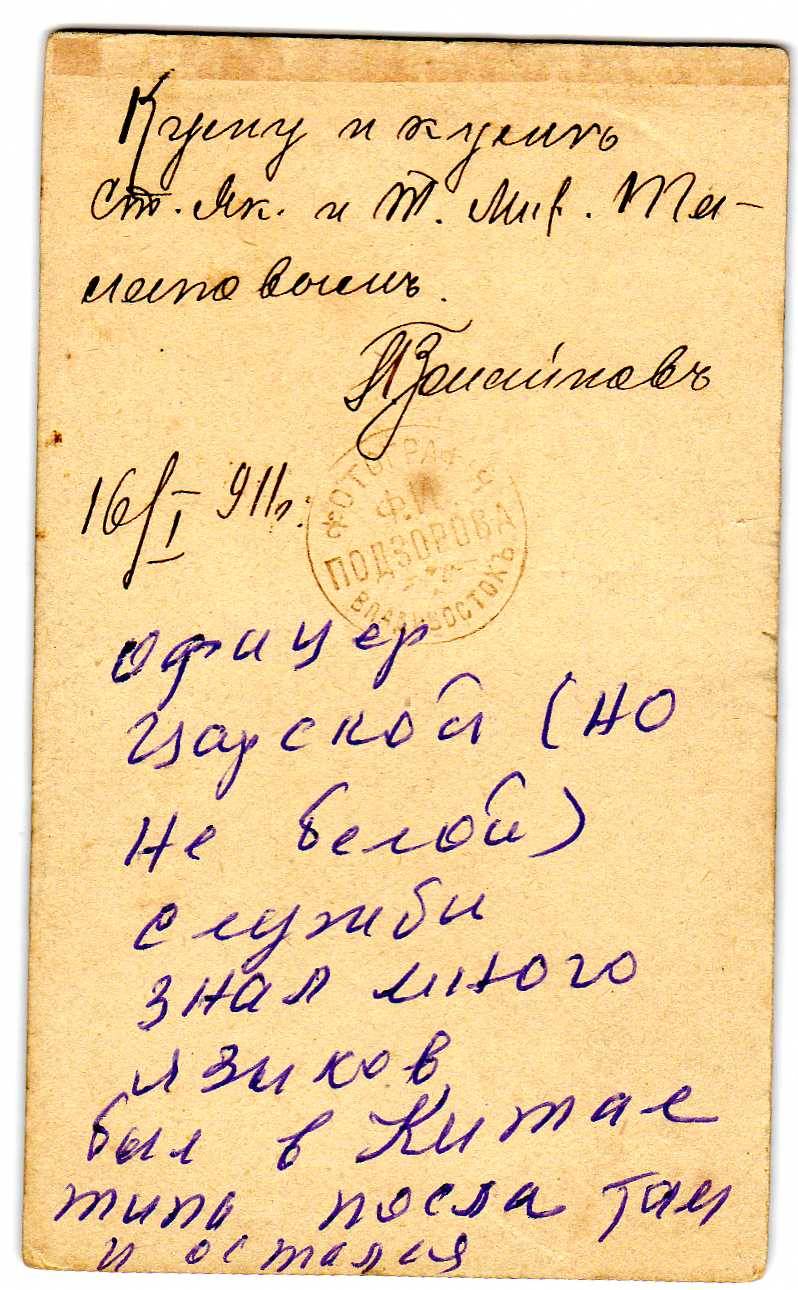 Куму и кумѣ
Ст. Як. и Т. Мир. Та-

16/I 911 г.
ФОТОГРАФІЯ
Ф.И.
ПОДЗОРОВА
ВЛАДИВОСТОКЪ
офицер
царской (но
не белой)
служби
знал много
язиков
был в Китае
типа посла там
и остался